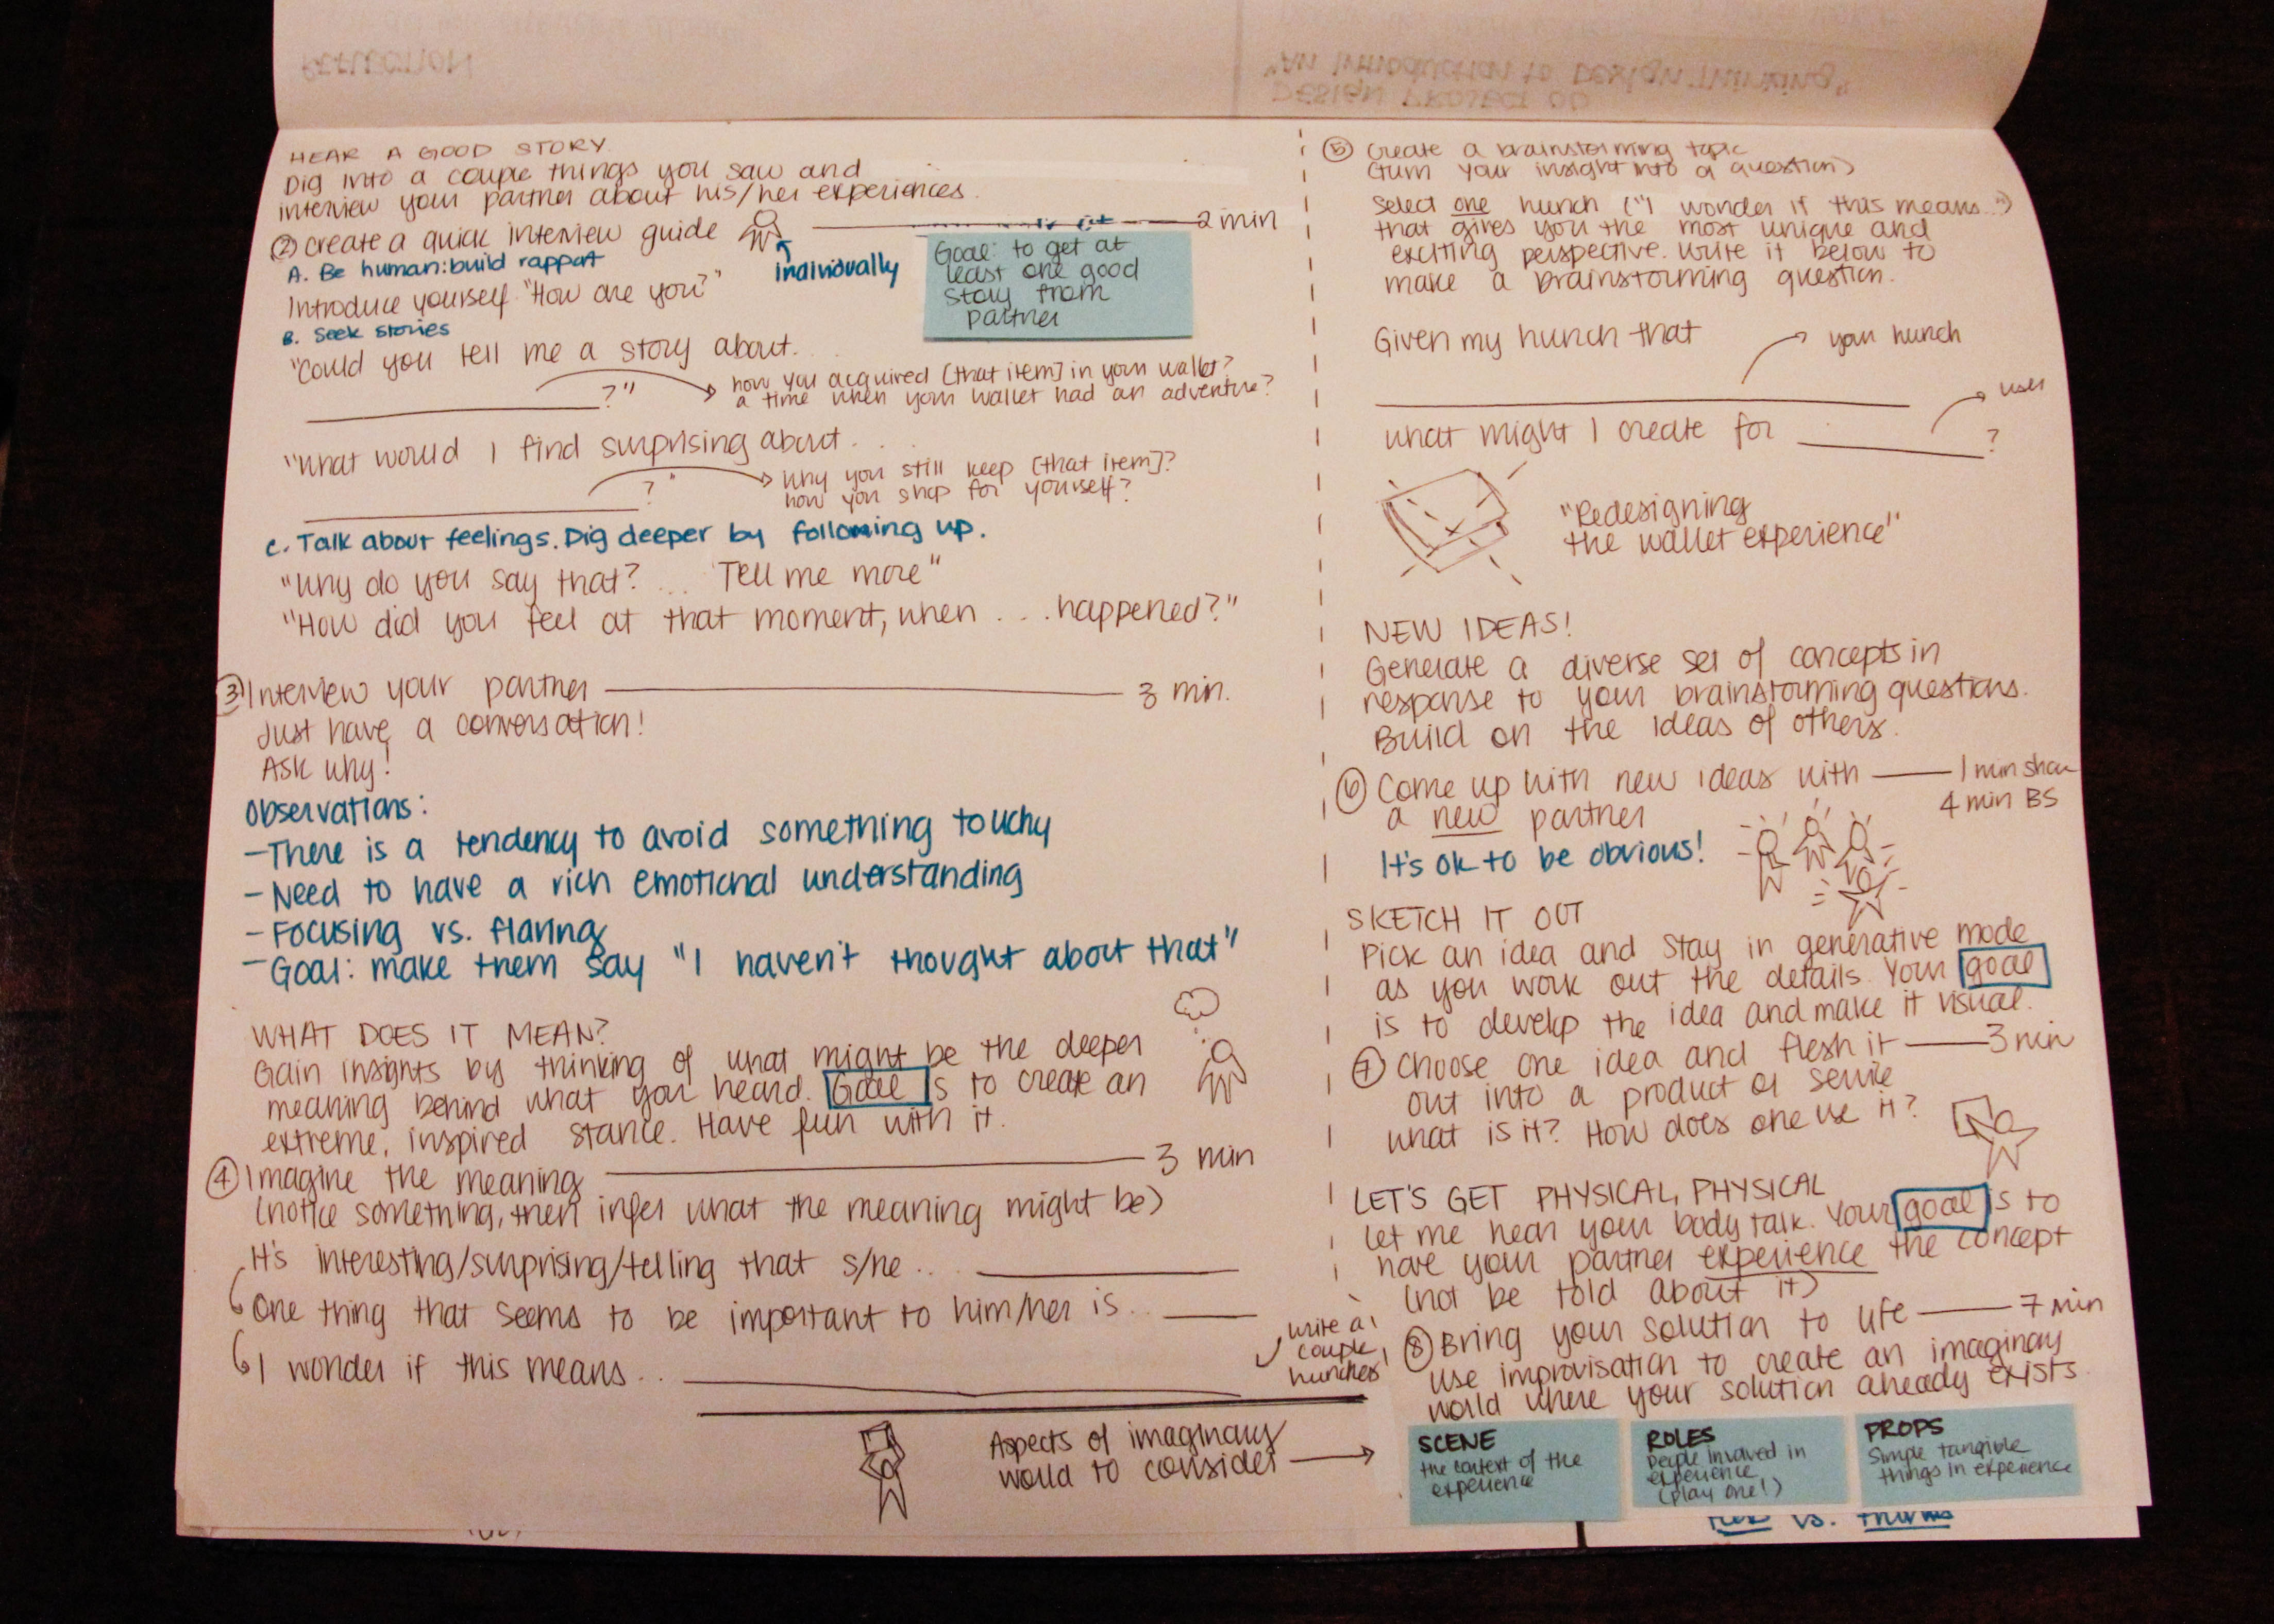 REFLECTION
"An Introduction to Design Thinking"
DESIGN PROJECT 00
HEAR A GOOD STORY.
Dig into a couple things you saw and
interview your partner about his/her experiences.
② create a quick interview guide
2 min
individually
A. Be human: build rapport
Introduce yourself "How are you?"
Goal: to get at
least one good
story from
partner
B. Seek stories
"Could you tell me a story about...
?"
how you acquired [that item] in your wallet?
a time when your wallet had an adventure?
"What would I find surprising about...
?"
why you still keep [that item]?
how you shop for yourself?
C. Talk about feelings. Dig deeper by following up.
"Why do you say that? ... Tell me more"
"How did you feel at that moment, when .... happened?"
③ Interview your partner
3 min.
Just have a conversation!
Ask why!
Observations:
- There is a tendency to avoid something touchy
- Need to have a rich emotional understanding
- Focusing vs. flaring
- Goal: make them say "I haven't thought about that"
WHAT DOES IT MEAN?
Gain insights by thinking of what might be the deeper
meaning behind what you heard. Goal is to create an
extreme, inspired stance. Have fun with it.
④ Imagine the meaning
3 min
(notice something, then infer what the meaning might be)
It's interesting/surprising/telling that s/he...
One thing that seems to be important to him/her is...
I wonder if this means...
write a
couple
hunches
Aspects of imaginary
world to consider
⑤ Create a brainstorming topic
(turn your insight into a question)
Select one hunch ("I wonder if this means...")
that gives you the most unique and
exciting perspective. Write it below to
make a brainstorming question.
Given my hunch that
your hunch
what might I create for
?
user
"Redesigning
the wallet experience"
NEW IDEAS!
Generate a diverse set of concepts in
response to your brainstorming questions.
Build on the ideas of others.
⑥ Come up with new ideas with
a new partner
1 min share
4 min BS
It's ok to be obvious!
SKETCH IT OUT
Pick an idea and stay in generative mode
as you work out the details. Your goal
is to develop the idea and make it visual.
⑦ Choose one idea and flesh it
3 min
out into a product or service
what is it? How does one use it?
LET'S GET PHYSICAL, PHYSICAL
Let me hear your body talk. Your goal is to
have your partner experience the concept
(not be told about it)
⑧ Bring your solution to life
7 min
Use improvisation to create an imaginary
world where your solution already exists.
SCENE
the context of the
experience
ROLES
People involved in
experience
(play one!)
PROPS
Simple tangible
things in experience
vs.